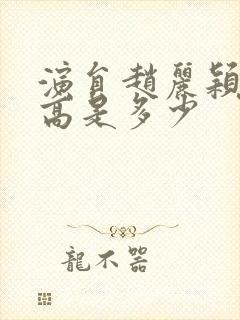 演員趙麗穎
高是多少
龍不器